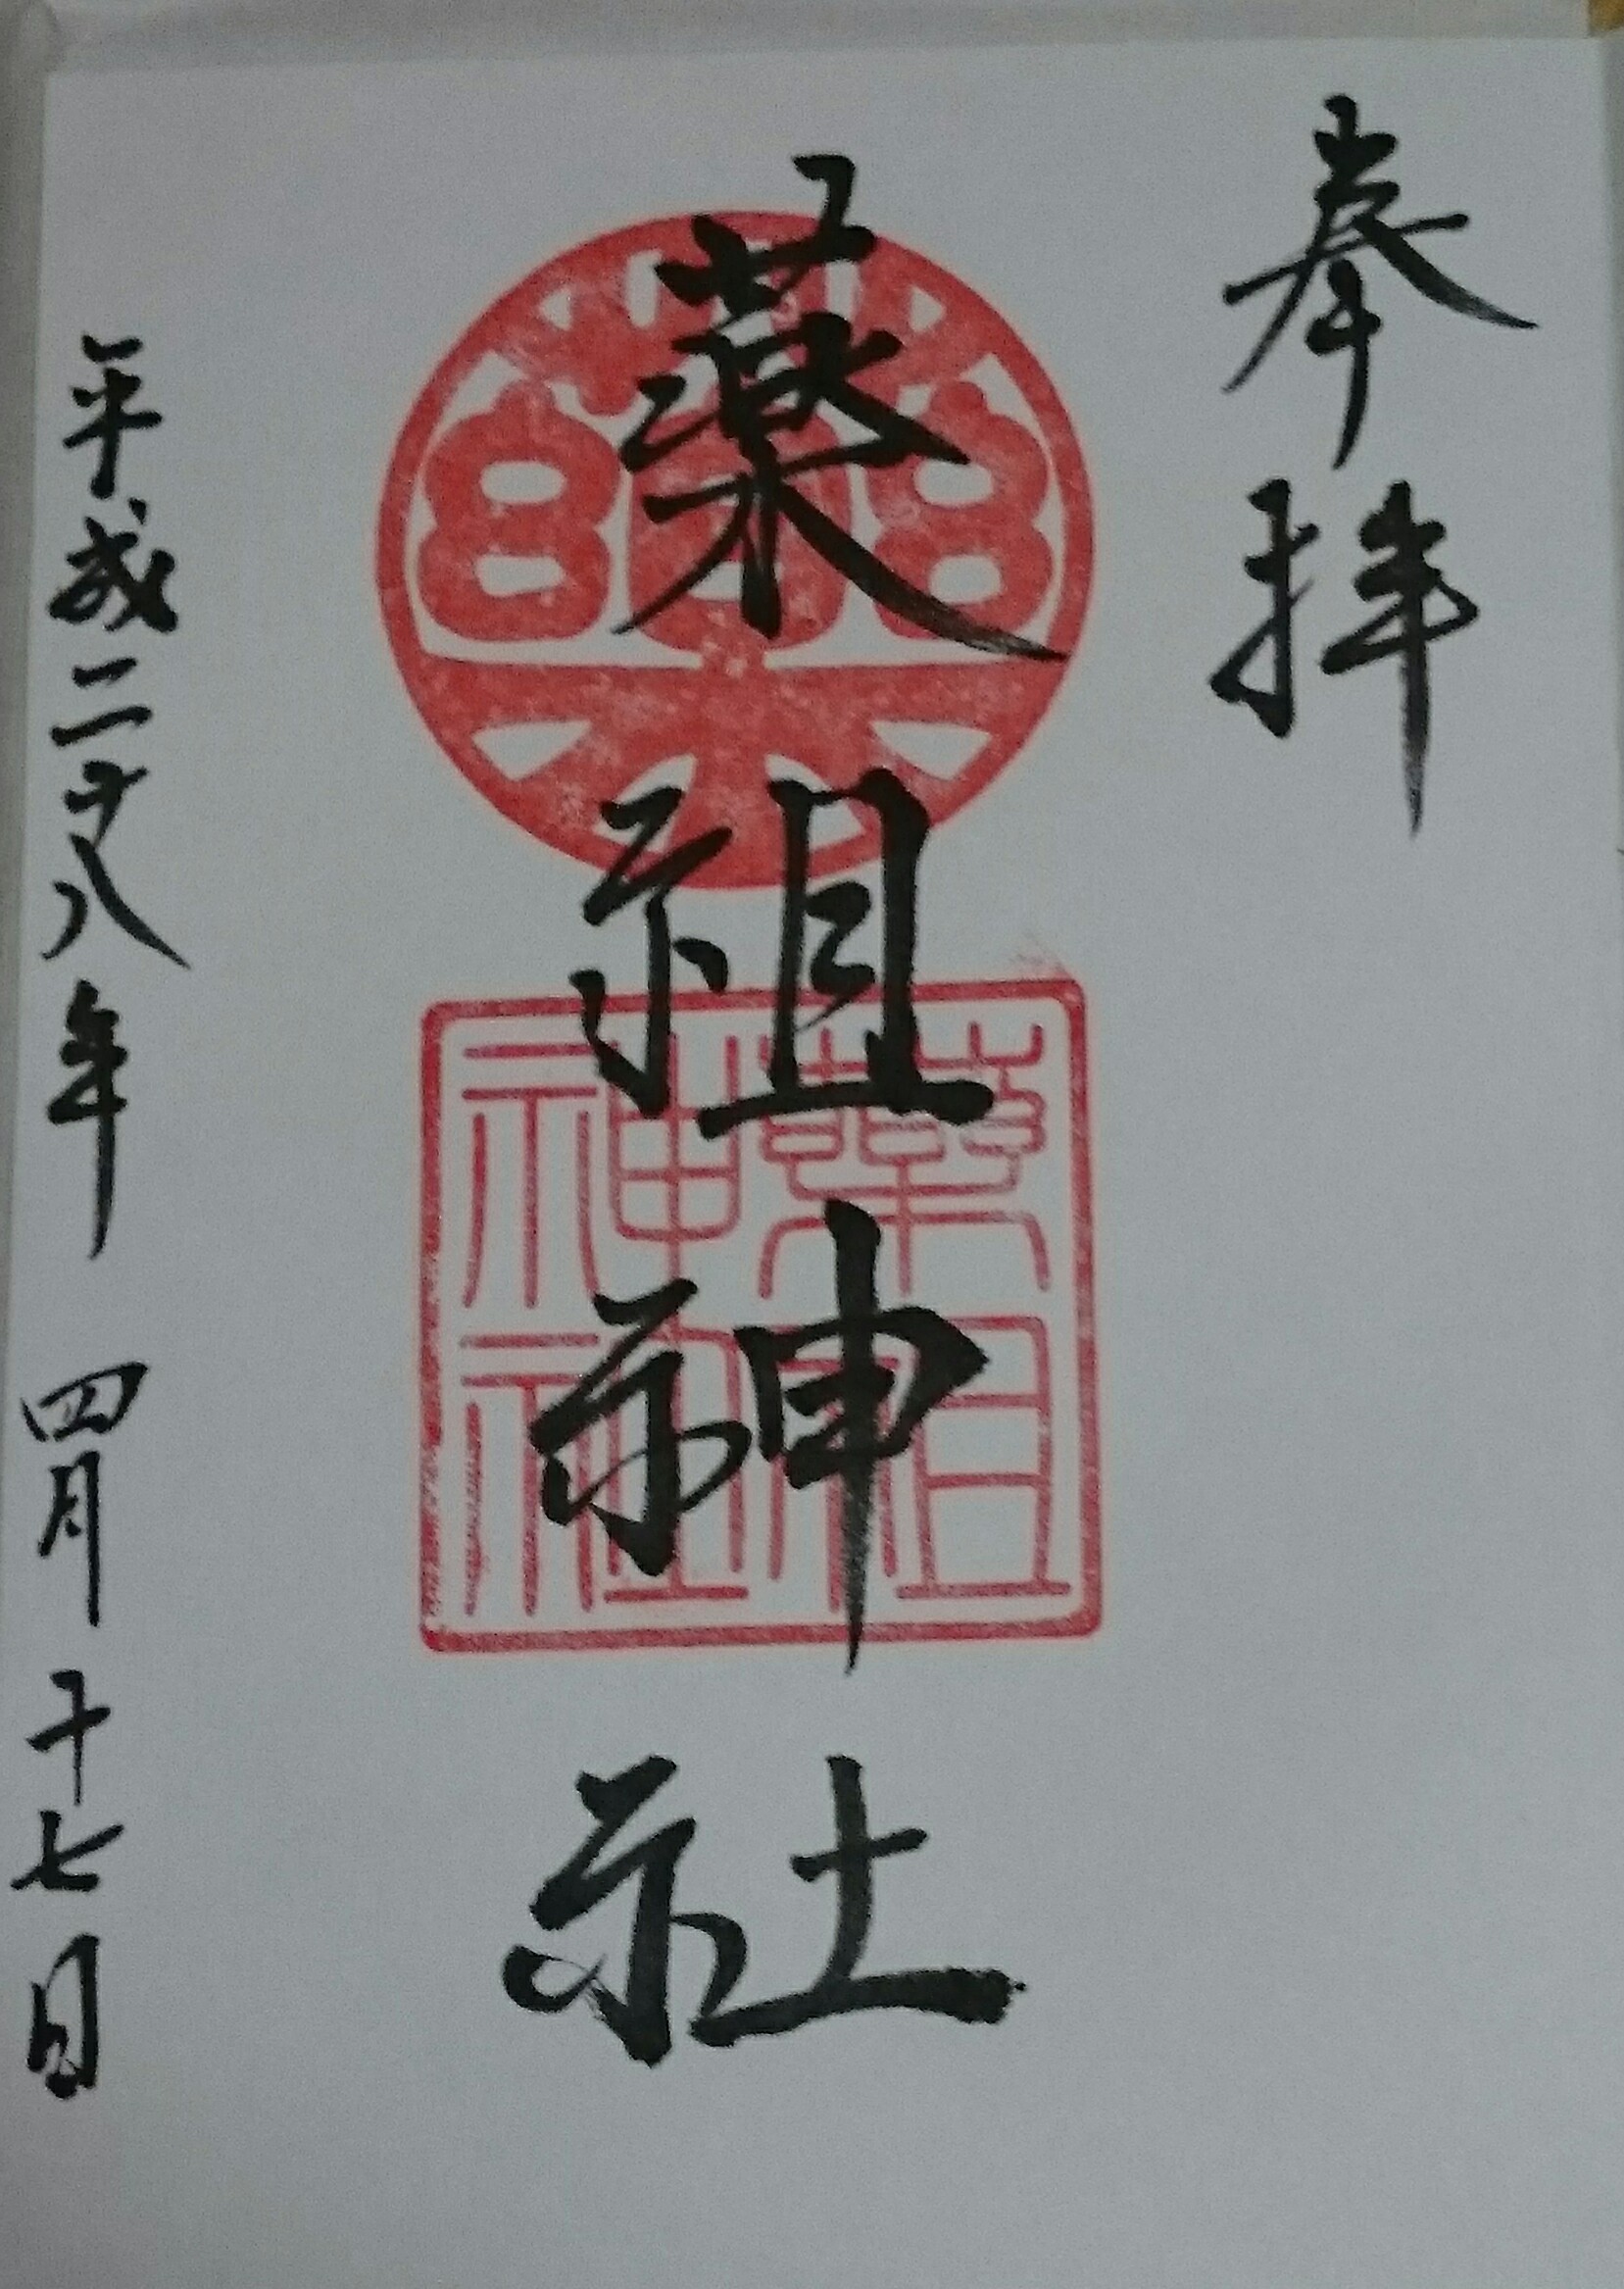 奉拝
薬祖神社
薬
薬祖神社
平成二十八年 四月 十七日